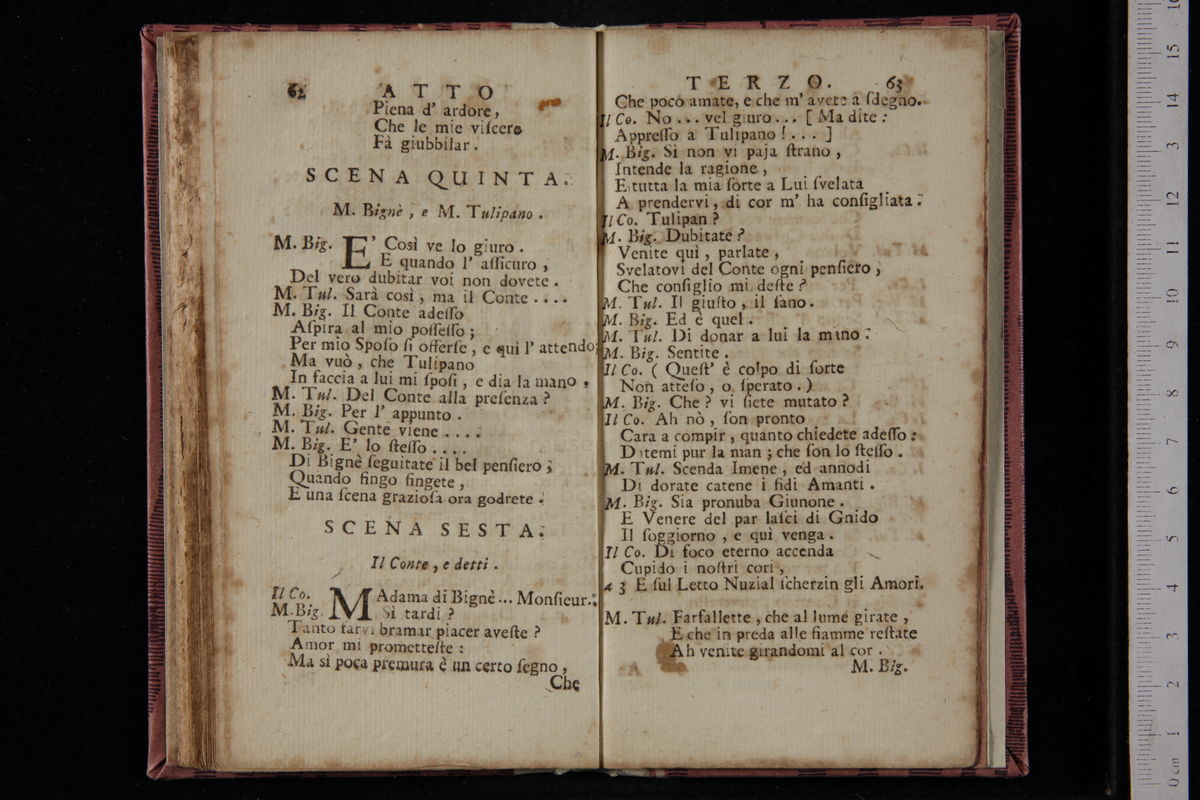 62 ATTO
Piena d' ardore,
Che le mie viſcere
Fà giubbilar.
SCENA QUINTA.
M. Bignè, e M. Tulipano.
M. Big. E' Così ve lo giuro.
E quando l' aſſicuro,
Del vero dubitar voi non dovete.
M. Tul. Sarà così, ma il Conte....
M. Big. Il Conte adeſſo
Aſpira al mio poſſeſſo;
Per mio Spoſo ſi offerſe, e quì l' attendo;
Ma vuò, che Tulipano
In faccia a lui mi ſpoſi, e dia la mano.
M. Tul. Del Conte alla preſenza?
M. Big. Per l' appunto.
M. Tul. Gente viene....
M. Big. E' lo ſteſſo....
Di Bignè ſeguitate il bel penſiero;
Quando fingo fingete,
E una ſcena grazioſa ora godrete.
SCENA SESTA.
Il Conte, e detti.
Il Co. MAdama di Bignè... Monſieur.
M. Big. Sì tardi?
Tanto farvi bramar piacer aveſte?
Amor mi prometteſte:
Ma sì poca premura è un certo ſegno,
Che
TERZO. 63
Che poco amate, e che m' avete a ſdegno.
Il Co. No... vel giuro... [ Ma dite:
Appreſſo a Tulipano!... ]
M. Big. Sì non vi paja ſtrano,
Intende la ragione,
E tutta la mia ſorte a Lui ſvelata
A prendervi, di cor m' ha conſigliata.
Il Co. Tulipan?
M. Big. Dubitate?
Venite quì, parlate,
Svelatovi del Conte ogni penſiero,
Che conſiglio mi deſte?
M. Tul. Il giuſto, il ſano.
M. Big. Ed è quel.
M. Tul. Di donar a lui la mano.
M. Big. Sentite.
Il Co. ( Queſt' è colpo di ſorte
Non atteſo, o ſperato. )
M. Big. Che? vi ſiete mutato?
Il Co. Ah nò, ſon pronto
Cara a compir, quanto chiedete adeſſo:
Datemi pur la man; che ſon lo ſteſſo.
M. Tul. Scenda Imene, ed annodi
Di dorate catene i fidi Amanti.
M. Big. Sia pronuba Giunone.
E Venere del par laſci di Gnido
Il ſoggiorno, e quì venga.
Il Co. Di foco eterno accenda
Cupido i noſtri cori,
a 3 E ſul Letto Nuzial ſcherzin gli Amori.
M. Tul. Farfallette, che al lume girate,
E che in preda alle fiamme reſtate
Ah venite girandomi al cor.
M. Big.
0 cm 1 2 3 4 5 6 7 8 9 10 11 12 13 14 15 16